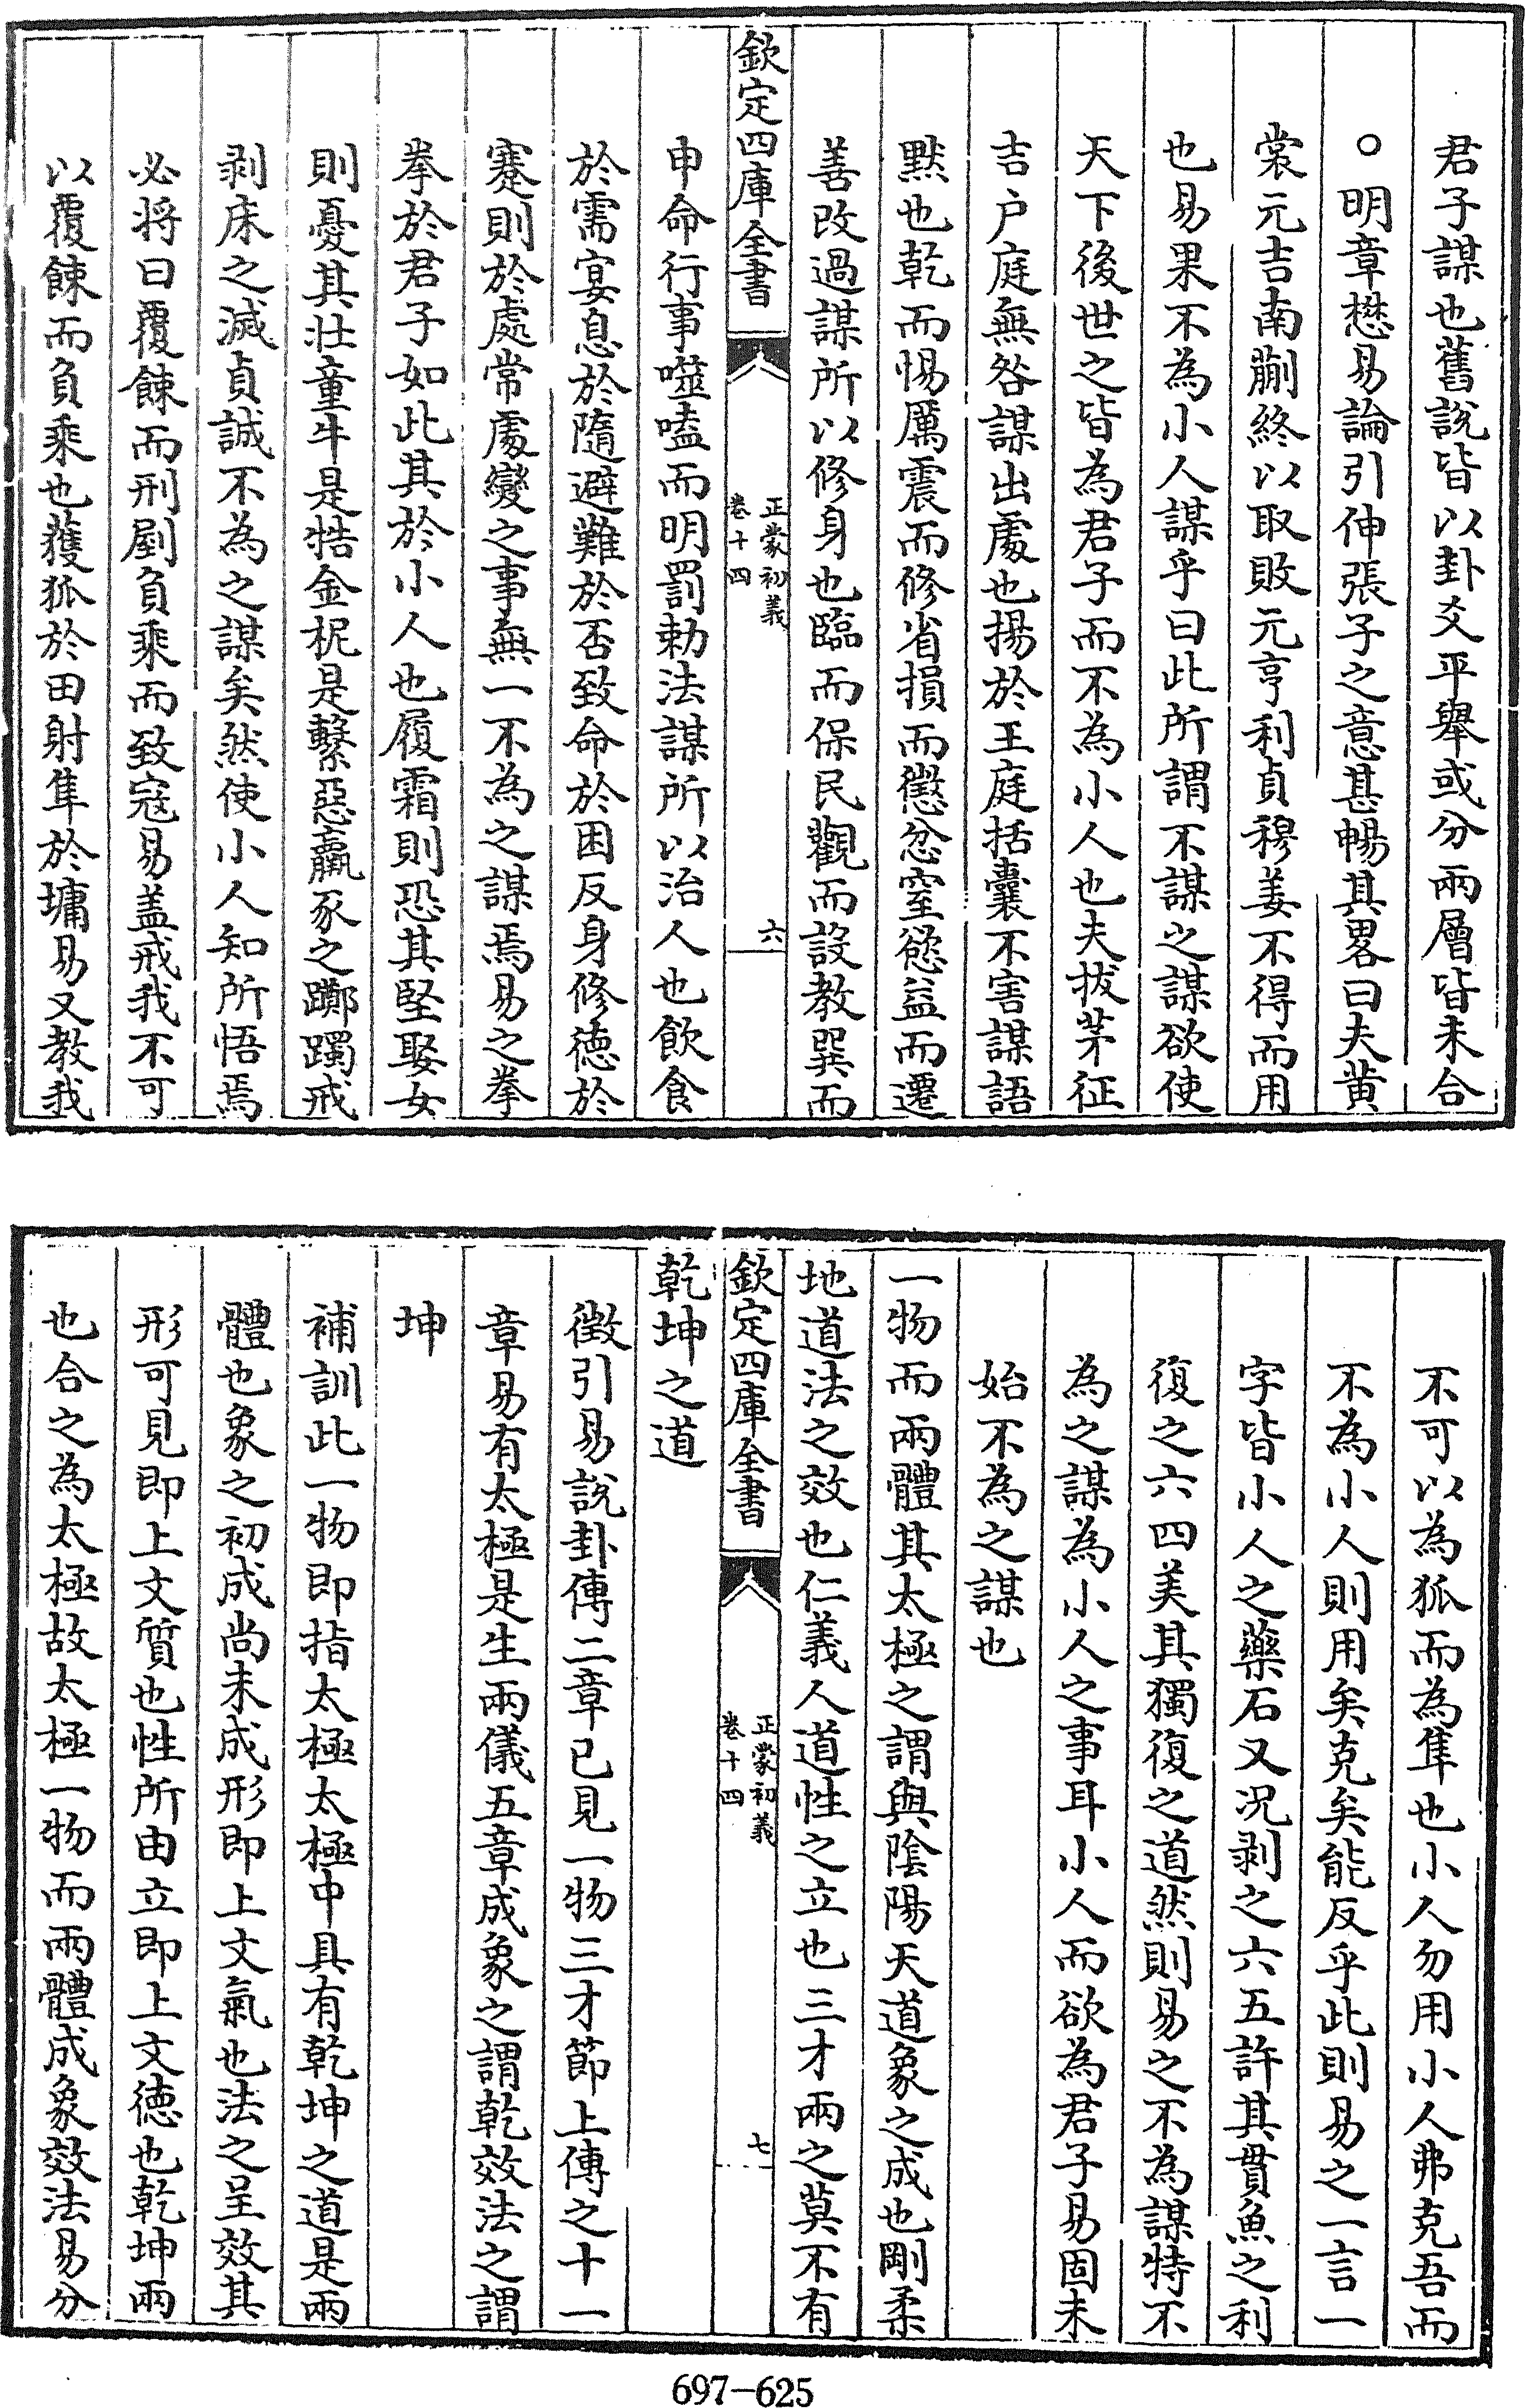 君子謀也舊說皆以卦爻平舉或分兩層皆未合
○明章懋易論引伸張子之意甚暢其畧曰夫黄
裳元吉南蒯終以取敗元亨利貞穆姜不得而用
也易果不為小人謀乎曰此所謂不謀之謀欲使
天下後世之皆為君子而不為小人也夫拔茅征
吉户庭無咎謀出處也揚於王庭括囊不害謀語
黙也乾而惕厲震而修省損而懲忿窒慾益而遷
善改過謀所以修身也臨而保民觀而設教巽而
欽定四庫全書
正蒙初義
卷十四
六
申命行事噬嗑而明罰勅法謀所以治人也飲食
於需宴息於隨避難於否致命於困反身修徳於
蹇則於處常處變之事無一不為之謀焉易之拳
拳於君子如此其於小人也履霜則恐其堅娶女
則憂其壯童牛是牿金柅是繫惡羸豕之躑躅戒
剥床之滅貞誠不為之謀矣然使小人知所悟焉
必将曰覆餗而刑剭負乘而致寇易盖戒我不可
以覆餗而負乘也獲狐於田射隼於墉易又教我
不可以為狐而為隼也小人勿用小人弗克吾而
不為小人則用矣克矣能反乎此則易之一言一
字皆小人之藥石又况剥之六五許其貫魚之利
復之六四美其獨復之道然則易之不為謀特不
為之謀為小人之事耳小人而欲為君子易固未
始不為之謀也
一物而兩體其太極之謂與陰陽天道象之成也剛柔
地道法之效也仁義人道性之立也三才兩之莫不有
欽定四庫全書
正蒙初義
卷十四
七
乾坤之道
徵引易說卦傳二章已見一物三才節上傳之十一
章易有太極是生兩儀五章成象之謂乾效法之謂
坤
補訓此一物即指太極太極中具有乾坤之道是兩
體也象之初成尚未成形即上文氣也法之呈效其
形可見即上文質也性所由立即上文徳也乾坤兩
也合之為太極故太極一物而兩體成象效法易分
697-625